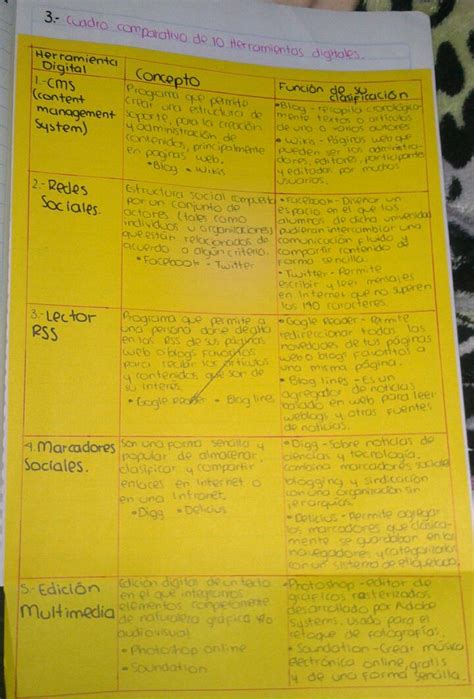 3.- Cuadro comparativo de 10 Herramientas digitales.
Herramienta
Digital
Concepto
Función de su
clasificación
1.- CMS
(content
management
System)
Programa que permite
crear una estructura de
soporte, para la creación
y administración de
contenidos, principalmente
en páginas web.
• Blog • Wikis
• Blog - recopila cronológica
mente textos o artículos
de uno o varios autores
• Wikis - Páginas web que
pueden ser los administra-
dores, editores, participantes
y editadas por muchos
usuarios.
2.- Redes
Sociales.
Estructura social compuesta
por un conjunto de
actores (tales como
individuos u organizaciones)
que están relacionados de
acuerdo a algún criterio.
• Facebook • Twitter
• Facebook - Diseñar un
espacio en el que los
alumnos de dicha universidad
pudieran intercambiar una
comunicación fluida y
compartir contenido de
forma sencilla.
• Twitter - Permite
escribir y leer mensajes
en Internet que no superen
los 140 caracteres.
3.- Lector
RSS
Programa que permite a
una persona darse de alta
en los RSS de sus páginas
web o blogs favoritos
para recibir los artículos
y contenidos que son de
su interés.
• Google Reader • Blog lines
• Google Reader - Permite
redireccionar todas las
novedades de tus páginas
web o blogs favoritos a
una misma página.
• Blog lines - Es un
agregador de noticias
basado en web para leer
weblogs y otras fuentes
de noticias.
4. Marcadores
Sociales.
Son una forma sencilla y
popular de almacenar,
clasificar y compartir
enlaces en Internet o
en una Intranet.
• Digg • Delicius
• Digg - Sobre noticias de
ciencias y tecnología.
Combina marcadores social
blogging y sindicación
con una organización sin
jerarquías.
• Delicius - Permite agregar
los marcadores que clásica-
mente se guardaban en los
navegadores y categorizarlos
con un sistema de etiquetado.
5.- Edición
Multimedia
Edición digital de un texto
en el que integramos
elementos completamente
de naturaleza gráfica y/o
audiovisual
• Photoshop online
• Soundation
• Photoshop - editor de
gráficos rasterizados
desarrollado por Adobe
Systems. Usado para el
retoque de fotografías.
• Soundation - Crear música
electrónica online, gratis
y de una forma sencilla.